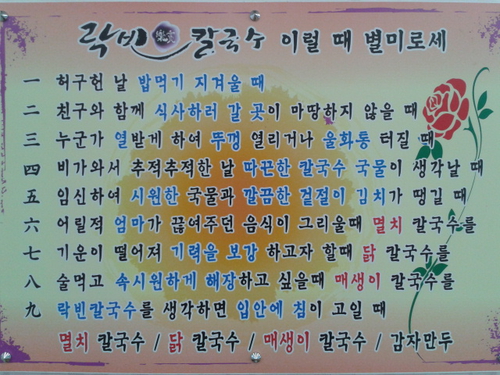 락빈 칼국수 이럴 때 별미로세
一 허구헌 날 밥먹기 지겨울 때
二 친구와 함께 식사하러 갈 곳이 마땅하지 않을 때
三 누군가 열받게 하여 뚜껑 열리거나 울화통 터질 때
四 비가와서 추적추적한 날 따끈한 칼국수 국물이 생각날 때
五 임신하여 시원한 국물과 깔끔한 겉절이 김치가 땡길 때
六 어릴적 엄마가 끊여주던 음식이 그리울때 멸치 칼국수를
七 기운이 떨어져 기력을 보강 하고자 할때 닭 칼국수를
八 술먹고 속시원하게 해장하고 싶을때 매생이 칼국수를
九 락빈칼국수를 생각하면 입안에 침이 고일 때
멸치 칼국수 / 닭 칼국수 / 매생이 칼국수 / 감자만두